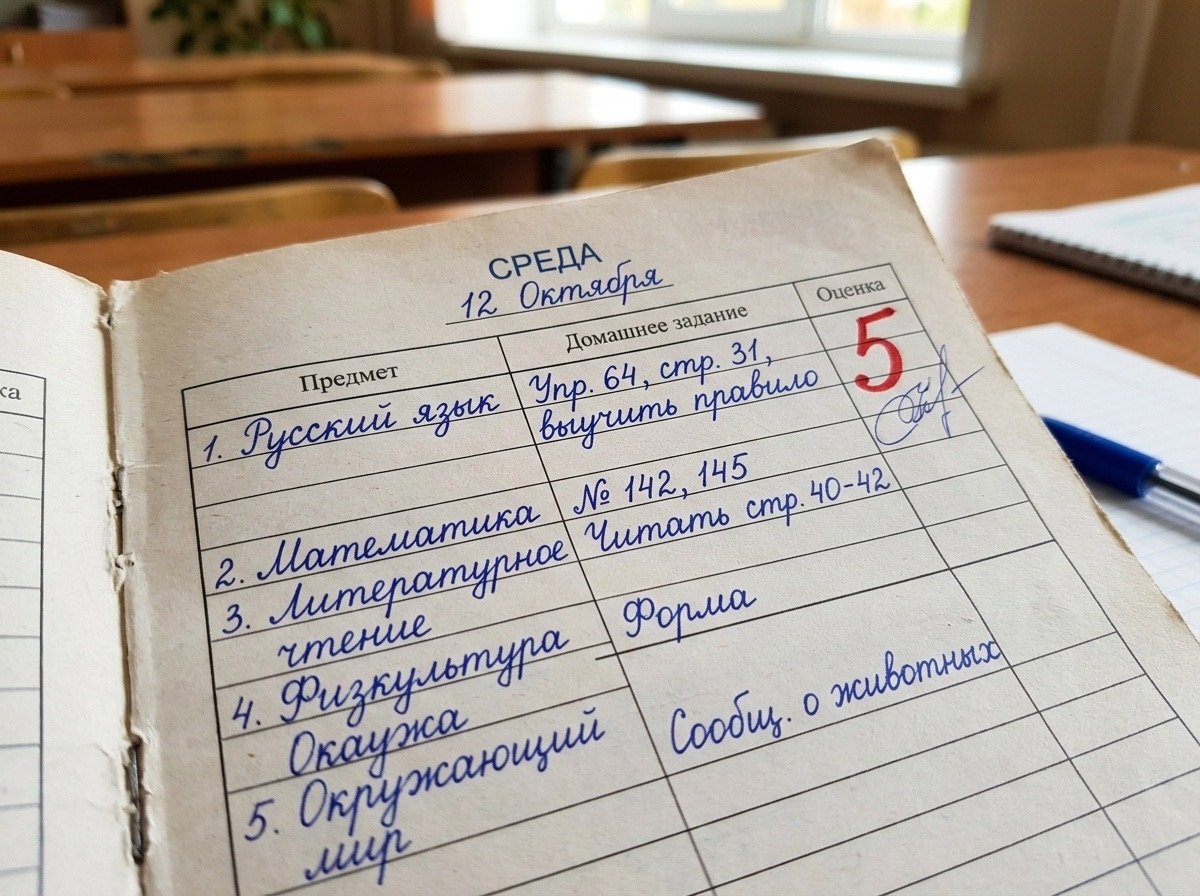 ка
СРЕДА
12 Октября
Предмет Домашнее задание Оценка
1. Русский язык Упр. 64, стр. 31, 5
выучить правило
2. Математика № 142, 145
3. Литературное Читать стр. 40-42
чтение
4. Физкультура Форма
Окаужа
5. Окружающий Сообщ. о животных
мир